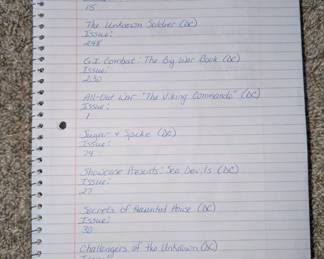 15
The Unknown Soldier (DC)
Issue:
248
G.I. Combat: The Big War Book (DC)
Issue:
230
All-Out War "The Viking Commando" (DC)
Issue:
1
Sugar & Spike (DC)
Issue:
29
Showcase Presents: Sea Devils (DC)
Issue:
27
Secrets of Haunted House (DC)
Issue:
30
Challengers of the Unknown (DC)